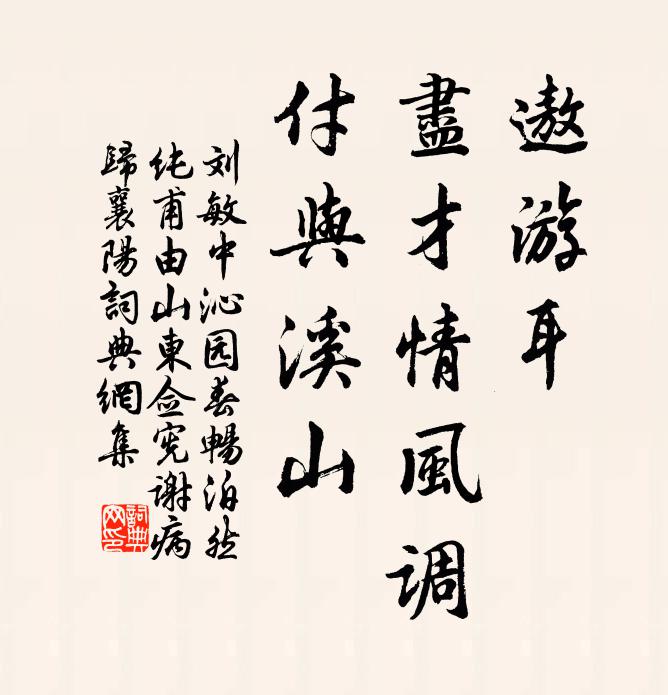 遨游耳
盡才情風調
付與溪山
刘敏中沁园春暢泊然
纯甫由山東佥宪谢病
歸襄陽詞典網集
詞典
网印